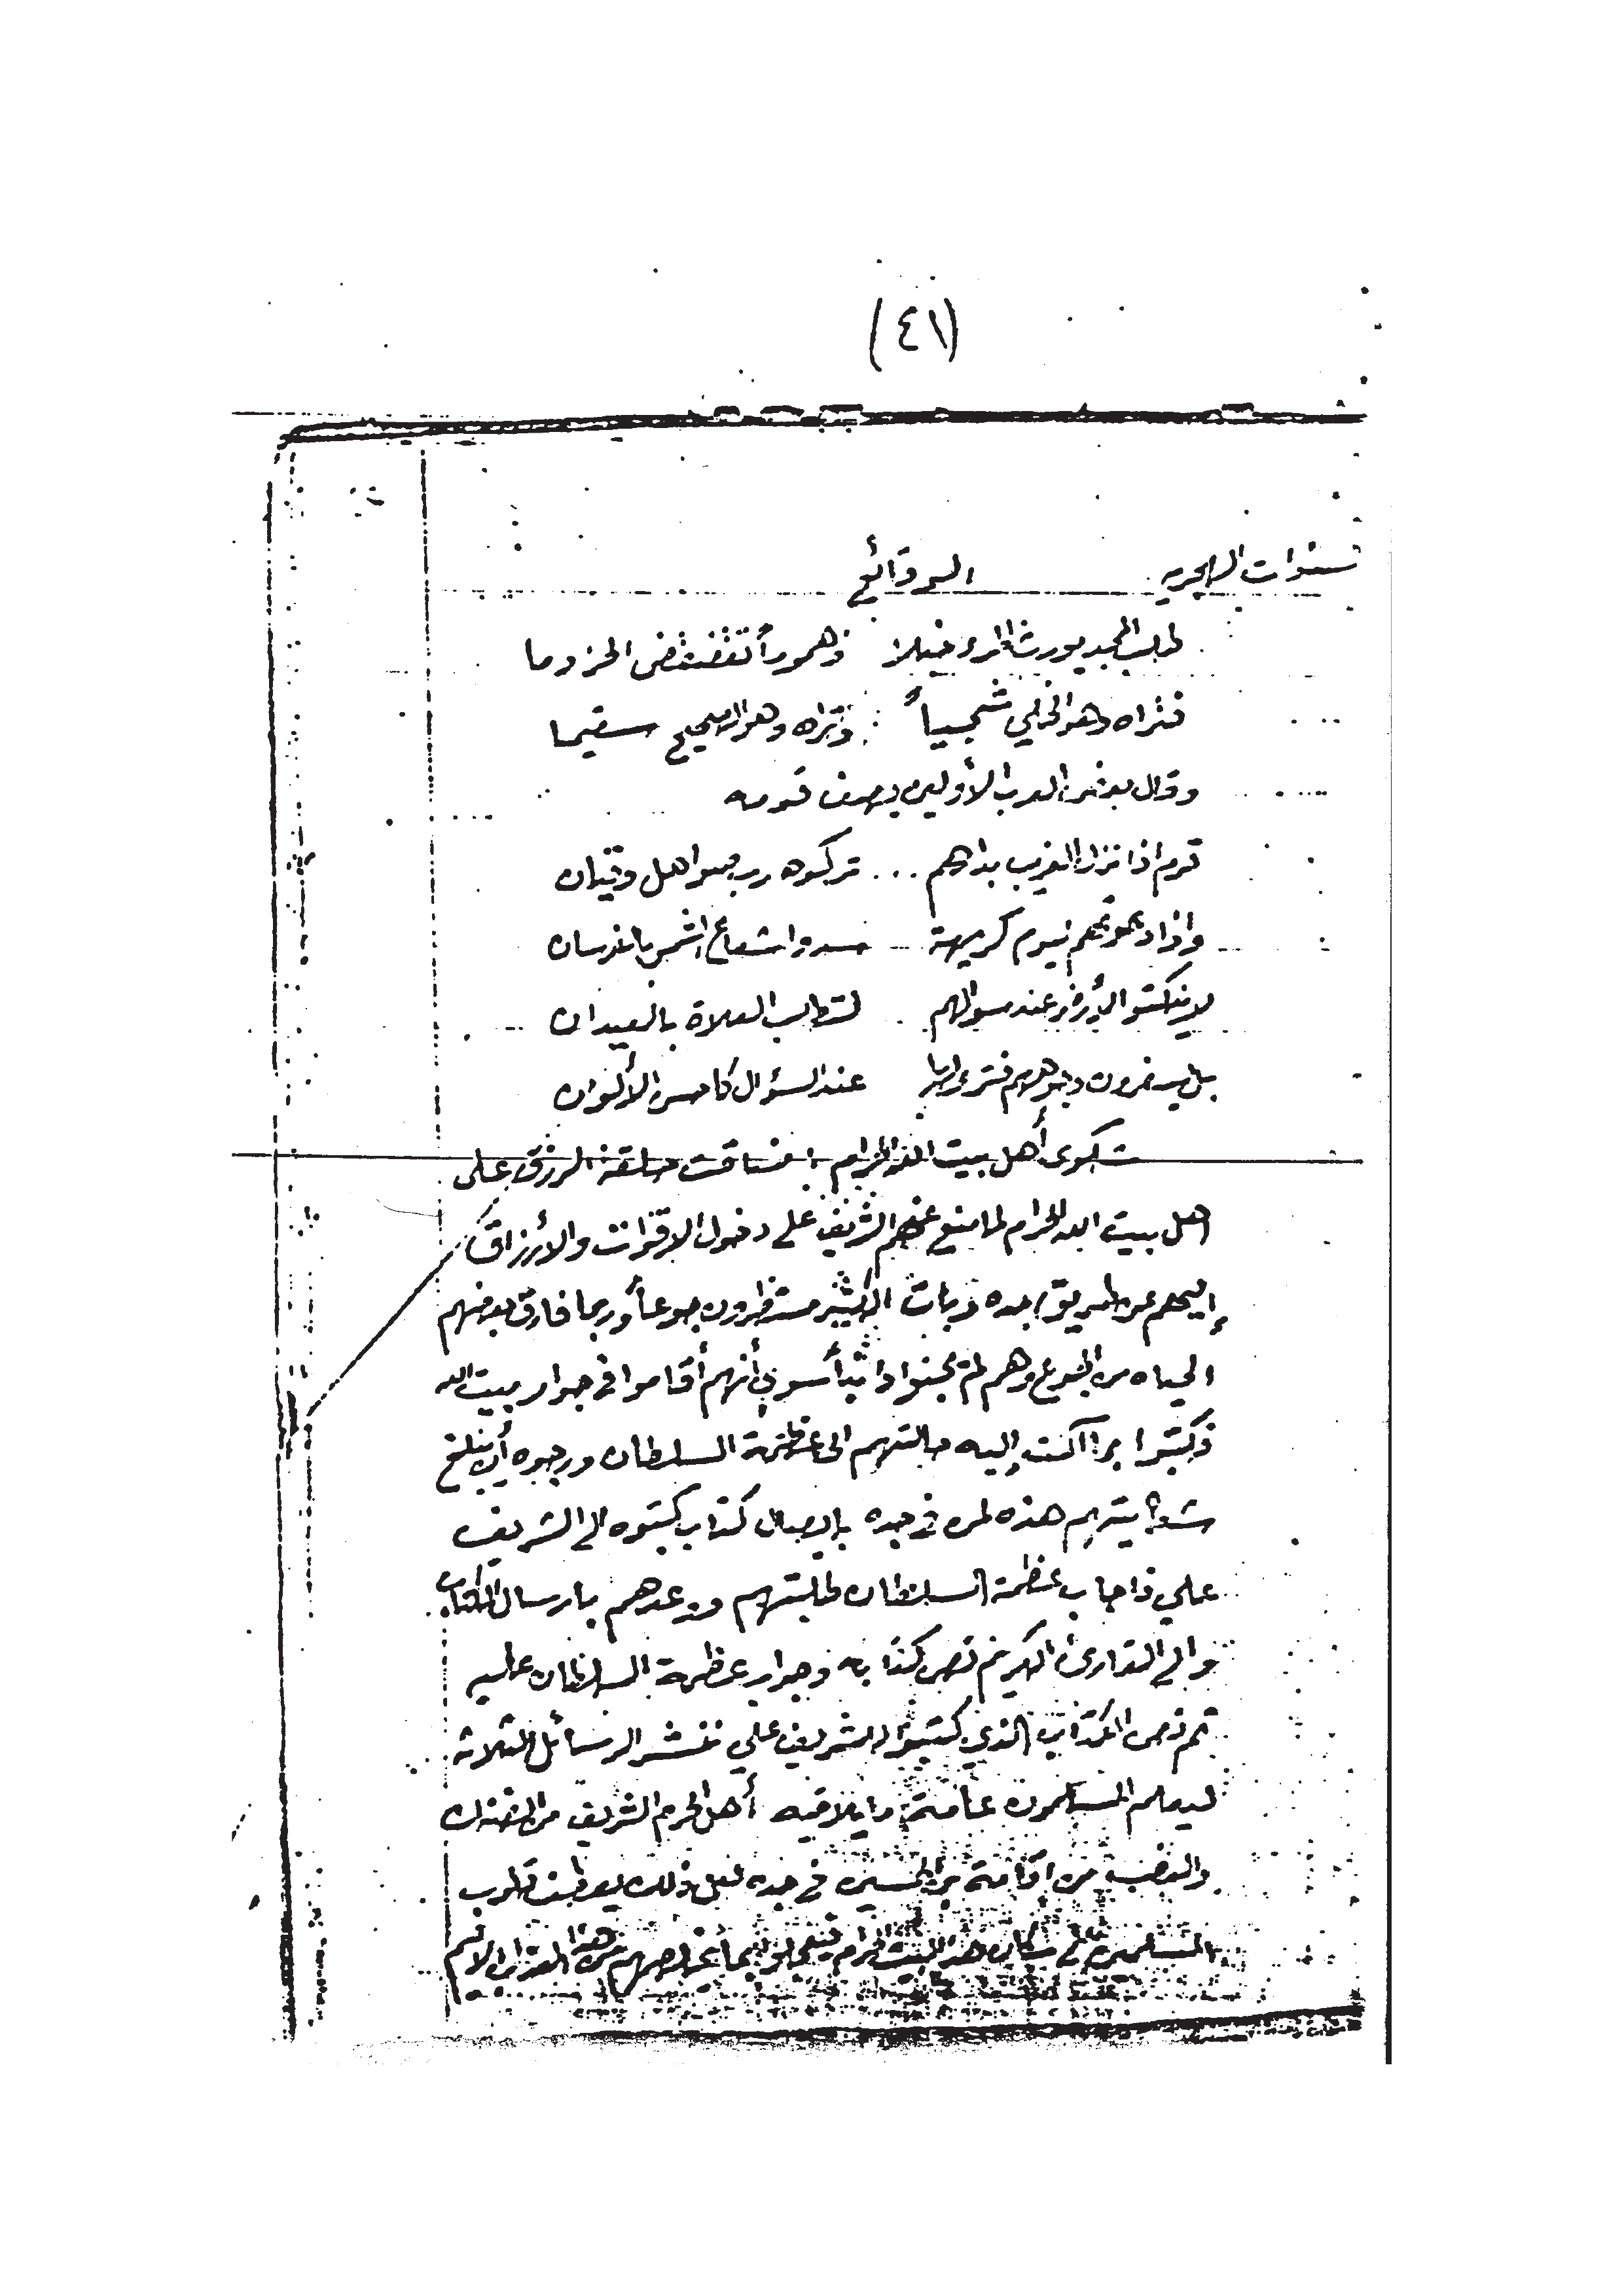 (٤١)
سنوات الهجريه الوقائع
طلب المجد يورث المرء خبلا وهموماً تقضقض الحيزوما
فتراه وهو الخلي شجياً وتراه وهو الصحيح سقيما
وقال بعض العرب الأولين يصف قومه
قوم اذا نزل الغريب بدارهم ... تركوه رب صواهل وقيان
واذا دعوتهم ليوم كريهة سدوا شعاع الشمس بالفرسان
لا ينكتوا الأرض عند سوالهم لتطلب العلاة بالعيدان
بل يسفرون وجوههم فترى لها عند السؤال كاحسن الألوان
شكوى أهل بيت الله الحرام : ضاقت حلقة الرزق على
اهل بيت الله الحرام لما منع عنهم الشريف علي دخول الاقوات والأرزاق
إليهم عن طريق جده وبات الكثير يتضورون جوعاً وربما فارق بعضهم
الحياه من الجوع وهم لم يجنوا ذنباً سوى أنهم أقاموا في جوار بيت الله
فكتبوا بما آلت إليه حالتهم الى عظمة السلطان ورجوه أن يبلغ
شكايتهم هذه لمن في جده بإيصال كتاب كتبوه الى الشريف
علي فاجاب عظمة السلطان طلبتهم ووعدهم بارسال الكتاب
والى القارئ الكريم نص كتابه وجواب عظمة السلطان عليه
ثم نص الكتاب الذي كتبوا للشريف علي ننشر الرسائل الثلاثه
ليعلم المسلمون عامة ما يلاقيه أهل الحرم الشريف من الضنك
والنصب من اقامة بن الحسين في جده لعل ذلك يعطف قلوب
المسلمين على سكان هذا البيت الحرام فيعملوا بما يخلصهم من هذا العذاب الأليم